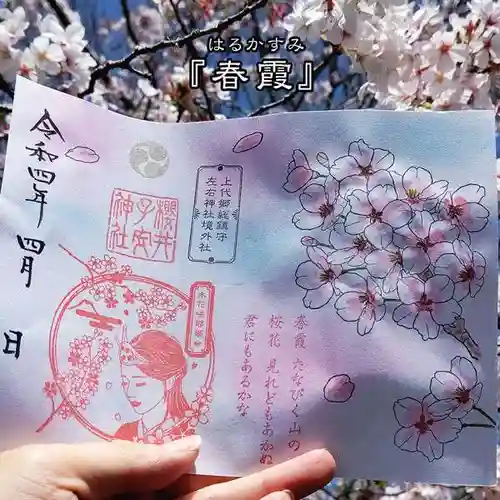 はるかすみ
『春霞』
令和四年 四月 日
上代郷総鎮守
左右神社境外社
櫻井
子安
神社
木花咲耶姫命
春霞 たなびく山の
桜花 見れどもあかぬ
君にもあるかな